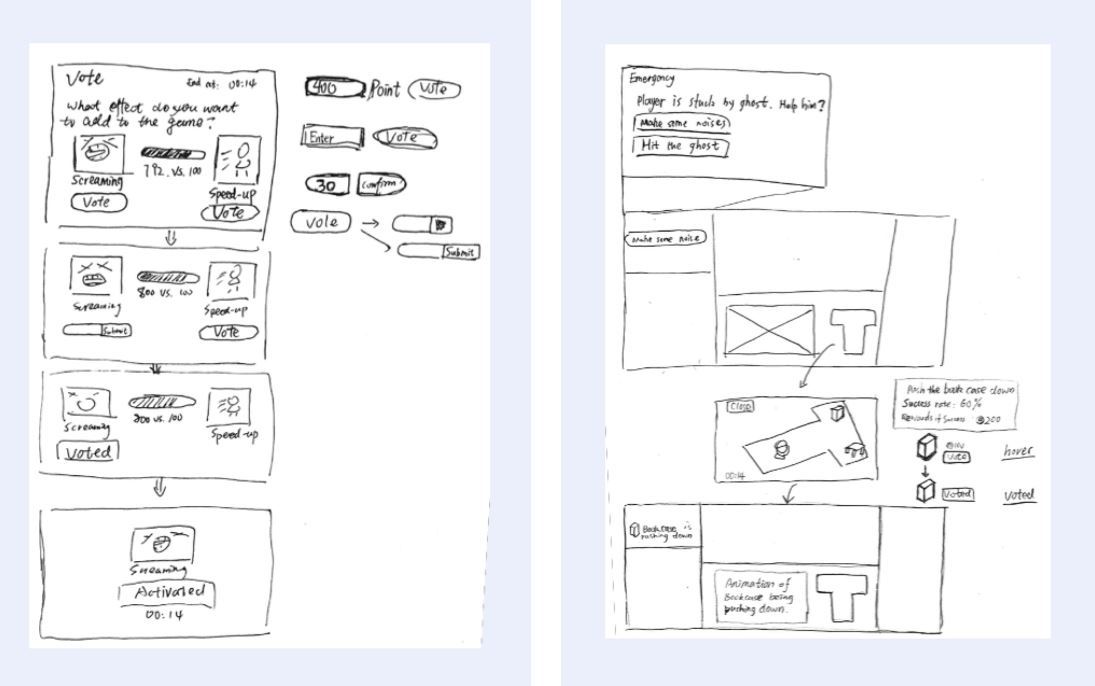 Vote
End at: 00:14
What effect do you want
to add to the game?
792 vs. 100
Screaming
Speed-up
Vote
Vote
800 vs. 100
Screaming
Speed-up
Submit
Vote
800 vs. 100
Screaming
Speed-up
Voted
Screaming
Activated
00:14
400 Point Vote
Enter Vote
30 Confirm
Vote
Submit
Emergency
Player is stuck by ghost. Help him?
Make some noises
Hit the ghost
Make some noise
Close
00:14
Push the book case down
Success rate: 60%
Rewards of Success 200
Vote
hover
Voted
voted
Bookcase is
pushing down
Animation of
Bookcase being
pushing down.